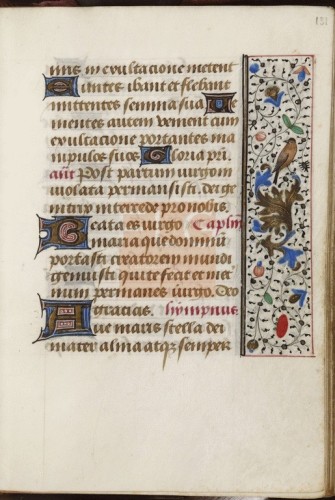 131
mus in exultacione metent
Euntes ibant et flebant
mittentes semina sua Ve
nientes autem venient cum
exultacione portantes ma
nipulos suos Gloria pri.
añt Post partum uirgo in
uiolata permansisti. dei ge
nitrix intercede pro nobis.
Beata es uirgo Caplm
maria que dominum
portasti creatorem mundi
genuisti qui te fecit et in eter
num permanes uirgo. Deo
gracias. hympnus
Aue maris stella dei
mater alma atqꝫ semper